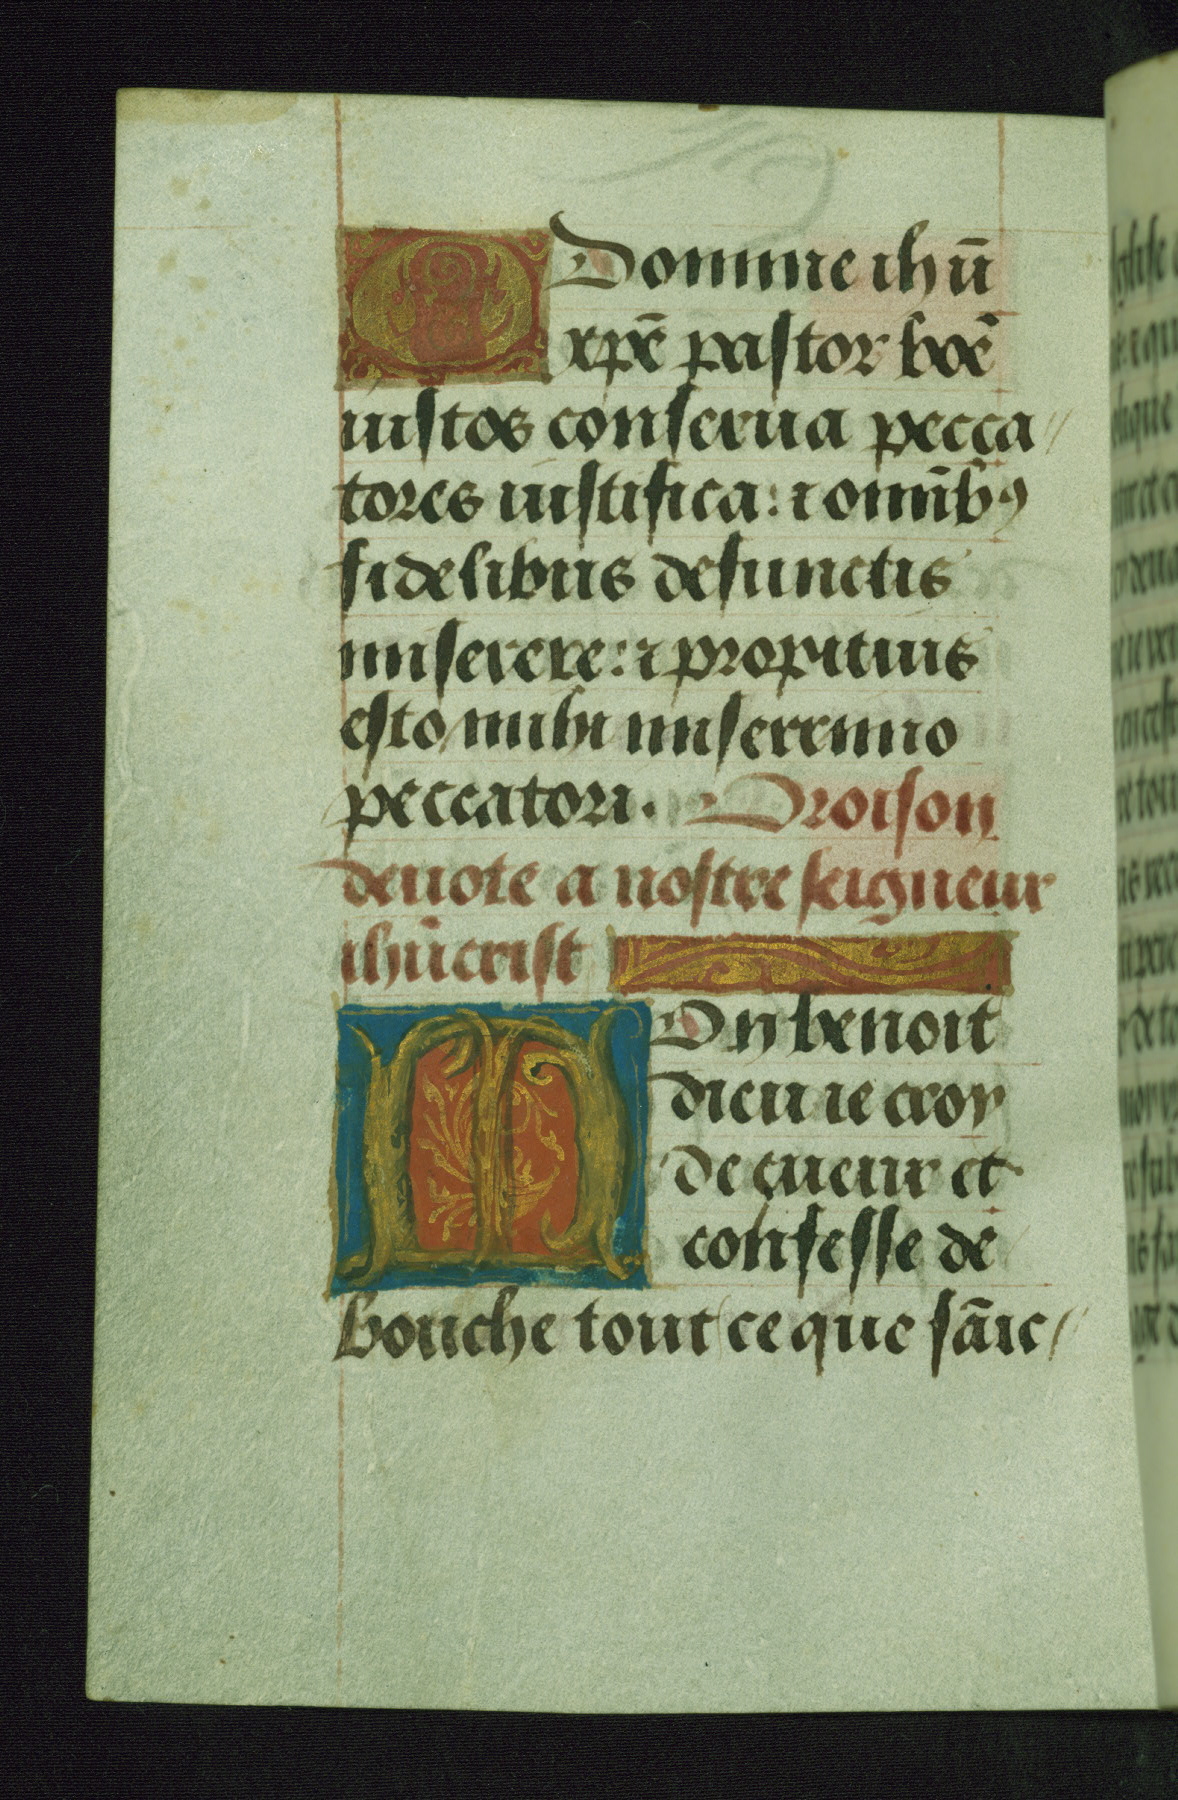 O Domine ihū
xpē pastor boē
iustos conserua pecca//
tores iustifica: ⁊ omībꝯ
fidelibus defunctis
miserere: ⁊ propitius
esto mihi miserrimo
peccatori. Oroison
deuote a nostre seigneur
ihūcrist
MOn benoit
dieu ie croy
de cueur et
confesse de
bouche tout ce que sāīc//